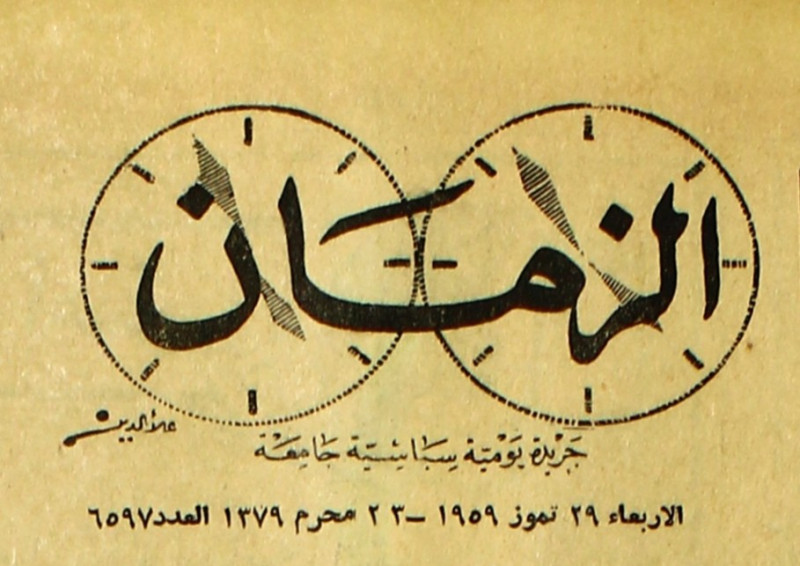 الزمان
علاءالدين
جَرْيدة يَوْميّة سِيَاسْيّة جَامِعَة
الاربعاء ٢٩ تموز ١٩٥٩ – ٢٣ محرم ١٣٧٩ العدد ٦٥٩٧